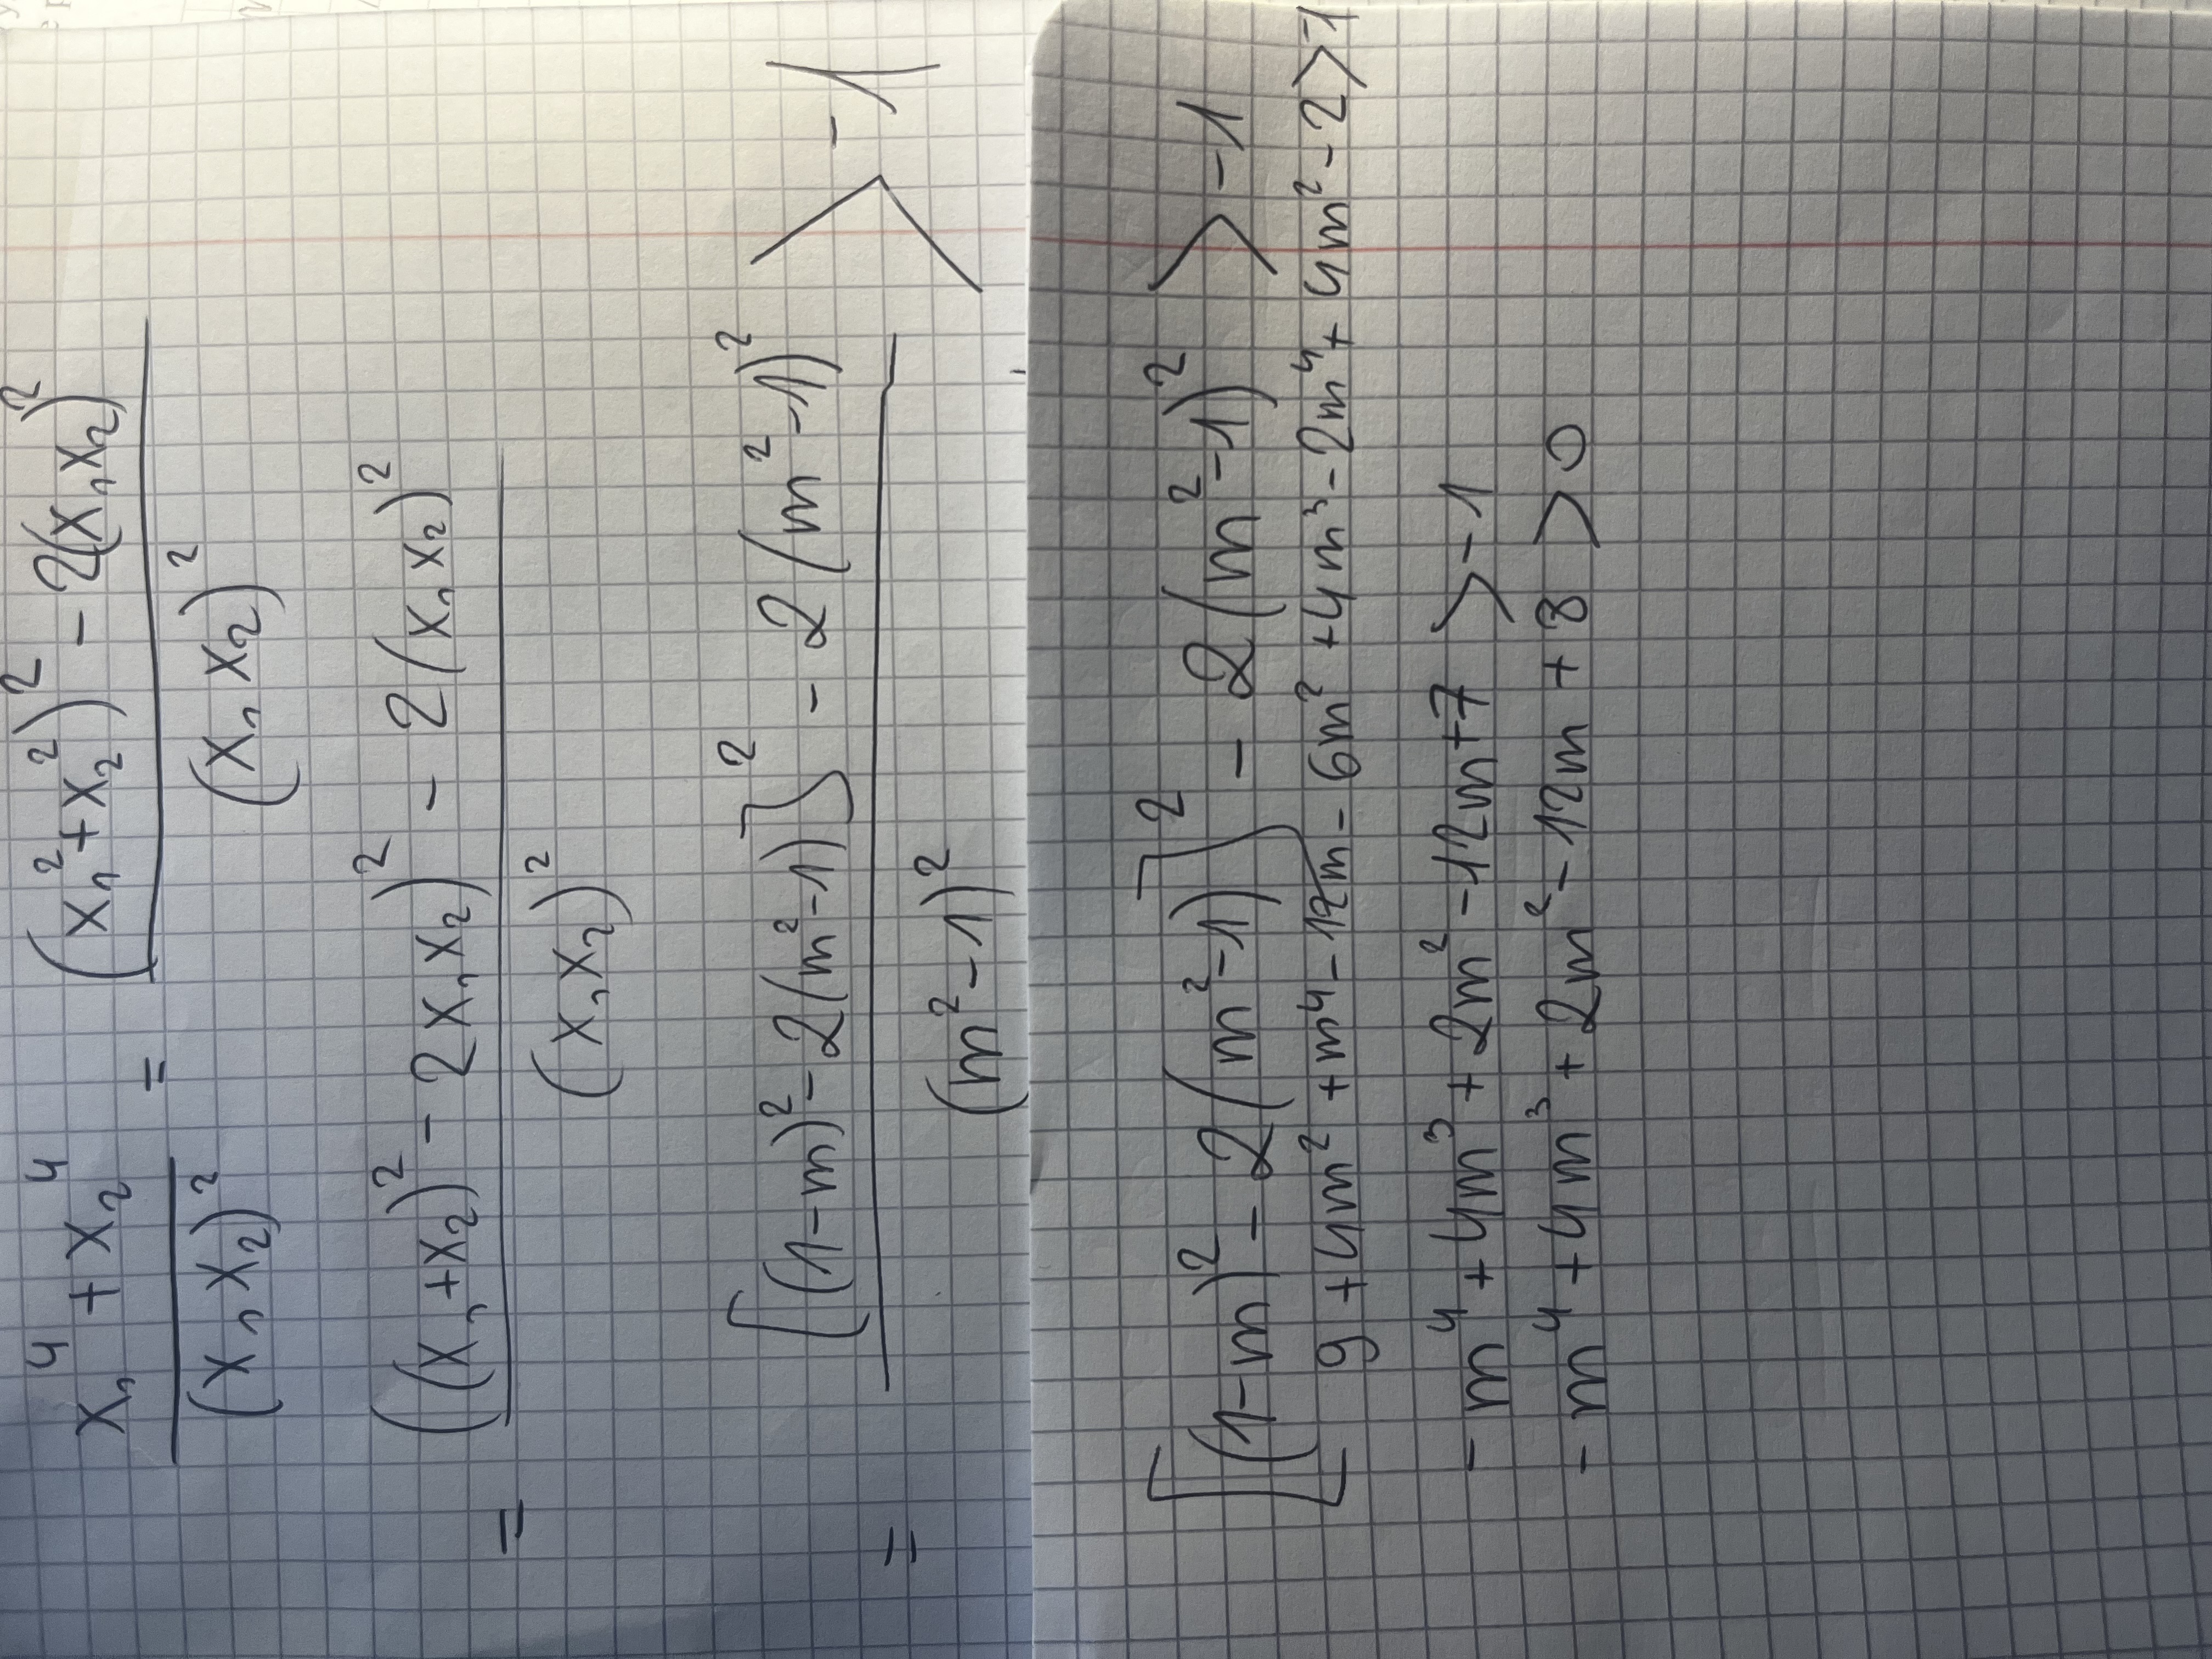 x₁⁴ + x₂⁴ / (x₁x₂)² = (x₁² + x₂²)² - 2(x₁x₂)² / (x₁x₂)²
= ((x₁+x₂)² - 2x₁x₂)² - 2(x₁x₂)² / (x₁x₂)²
= [(1-m)² - 2(m²-1)]² - 2(m²-1)² / (m²-1)² > -1
[(1-m)² - 2(m²-1)]² - 2(m²-1)² > -1
9 + 4m² + m⁴ - 12m - 6m² + 4m³ - 2m⁴ + 4m² - 2 > -1
- m⁴ + 4m³ + 2m² - 12m + 7 > -1
- m⁴ + 4m³ + 2m² - 12m + 8 > 0